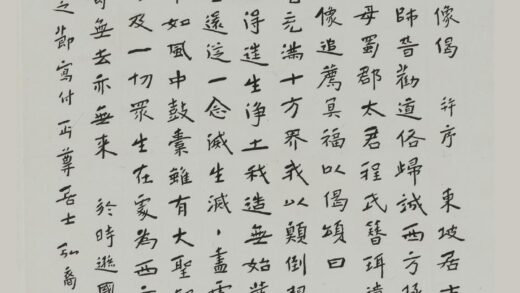 像偈 并序 東坡居
師普勸道俗歸誠西方極
母蜀郡太君程氏簪珥遺
像追薦冥福以偈頌曰
充滿十方界我以顛倒
得造生淨土我造無始業
還從一念滅生滅、盡
中如風中鼓橐雖有大聖
及一切眾生在處為西
無去亦無來 於時遜國
之節寫付丏尊居士 弘裔